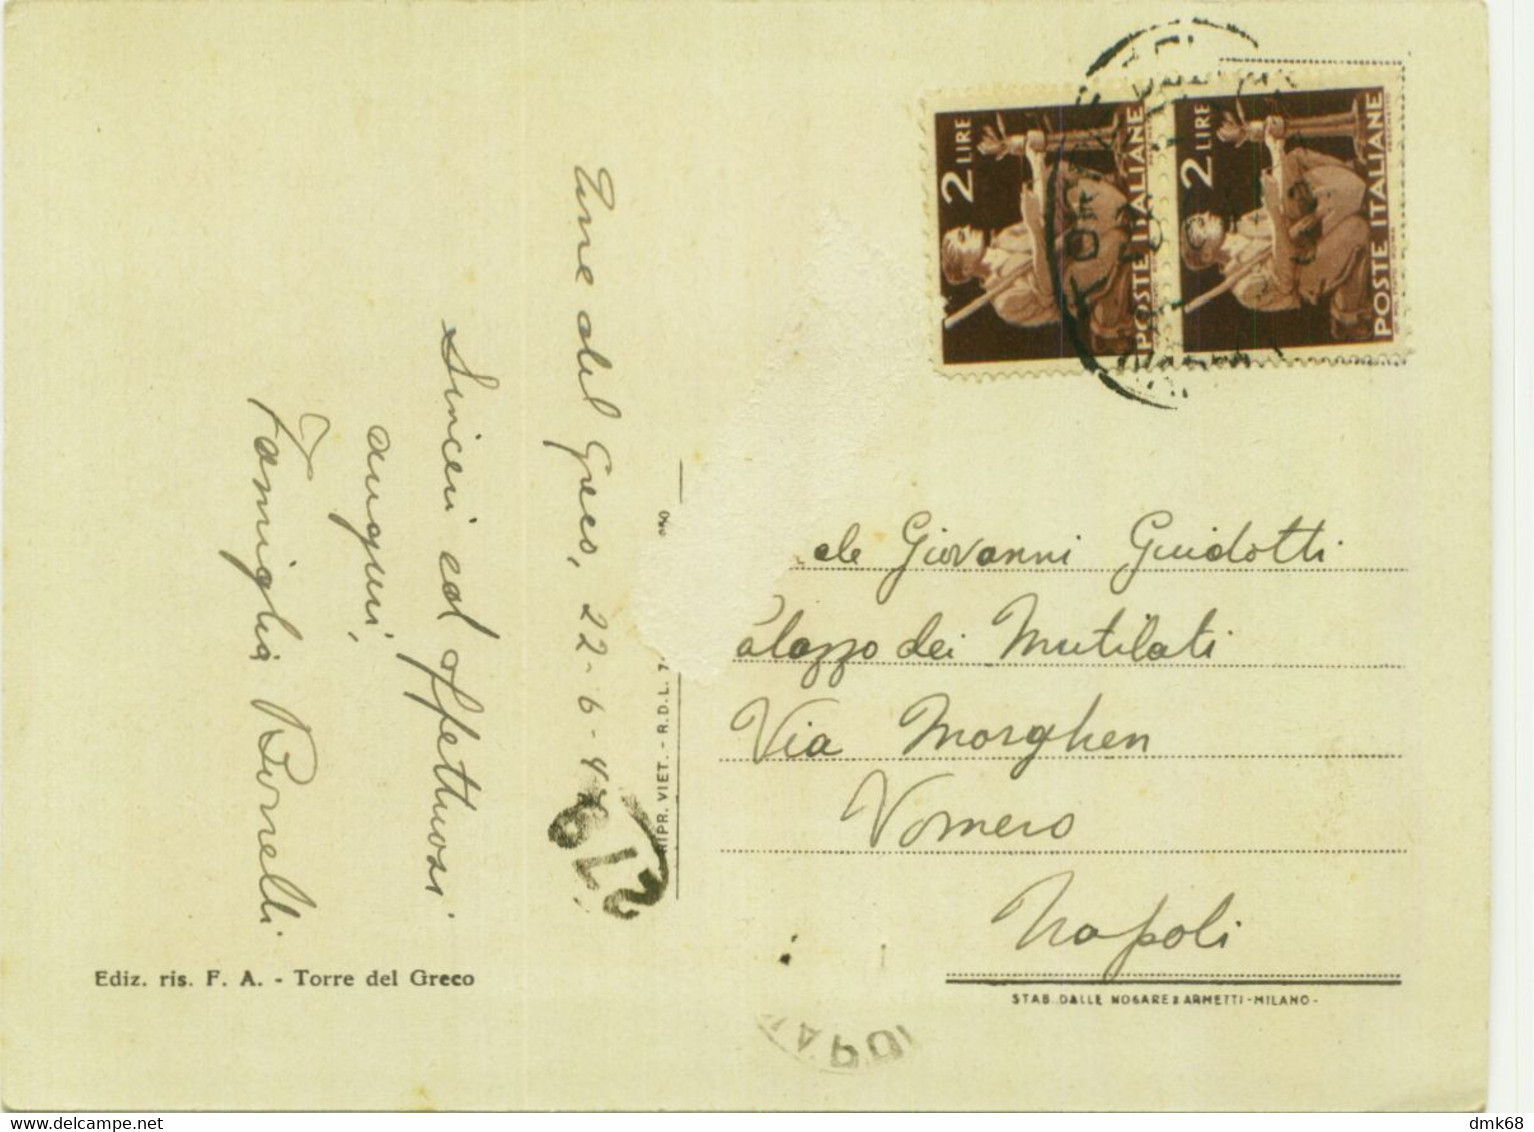 Torre del Greco, 22-6-4
Sinceri ed affettuosi
auguri,
Famiglia Borrelli
Ediz. ris. F. A. - Torre del Greco
RIPR. VIET. - R.D.L. 7
ale Giovanni Guidotti
alazzo dei Mutilati
Via Morghen
Vomero
Napoli
STAB. DALLE NOGARE & ARMETTI - MILANO -
2 LIRE
POSTE ITALIANE
2 LIRE
POSTE ITALIANE
delcampe.net
dmk68